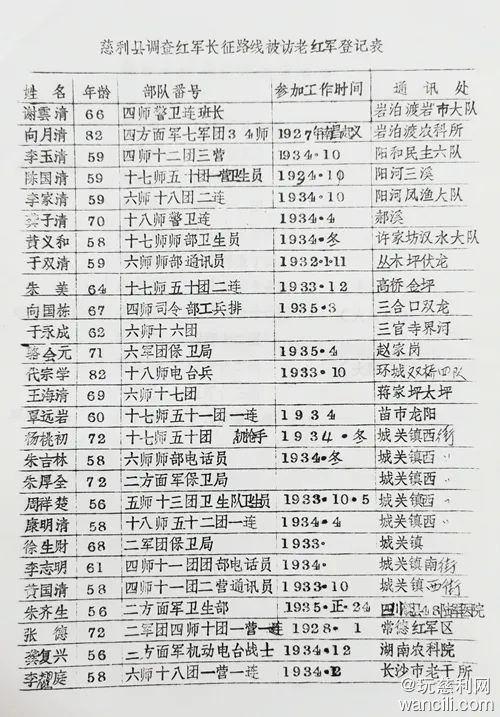 慈利县调查红军长征路线被访老红军登记表
姓名 年龄 部队番号 参加工作时间 通讯处
谢雲清 66 四师警卫连班长 岩泊渡岩市大队
向月清 82 四方面军七军团34师 1927年南昌起义 岩泊渡农科所
李玉清 59 四师十二团三营 1934·10 阳和民主六队
陈国清 59 十七师五十团一营卫生员 1934·10 阳河三溪
李家清 59 六师十八团二连 1934·10 阳河风渔大队
龚子清 70 十八师警卫连 1934·4 郝溪
黄义和 58 十七师师部卫生员 1934·冬 许家坊汉水大队
于双清 59 六师师部通讯员 1932·1·11 丛木坪伏龙
朱美 64 十七师五十团二连 1933·12 高桥金坪
向国栋 67 四师司令部工兵排 1935·3 三合口双龙
于永成 62 六师十六团 三官寺界河
骆会元 71 六军团保卫局 1935·4 赵家岗
代宗学 82 十八师电台兵 1933·10 环城双桥四队
王海清 69 六师十七团 蒋家坪太坪
覃远岩 60 十七师五十一团一连 1934 苗市龙阳
杨桃初 72 十七师五十团 机枪手 1934·冬 城关镇西街
朱吉林 58 六师师部电话员 1934·冬 城关镇西〃
朱厚全 72 二方面军保卫局 城关镇西〃
周祥楚 56 五师十三团卫生队卫生员 1933·10·5 城关镇西〃
康明清 58 十八师五十二团一连 1934·4 城关镇西〃
徐生财 68 二军团保卫局 1933· 城关镇
李志明 61 四师十一团团部电话员 1934· 城关镇南街
黄国清 58 四师十一团二营通讯员 1933·10 城关镇西街
朱齐生 56 二方面军卫生部 1935·正·24
张德 72 二军团四师十团一营一连 1928·1 常德红军区
龚复兴 56 二方面军机动电台战士 1934·12 湖南农科院
李耀庭 58 六师十八团一营一连 1934·12 长沙市老干所
@玩慈利网
wancili.com